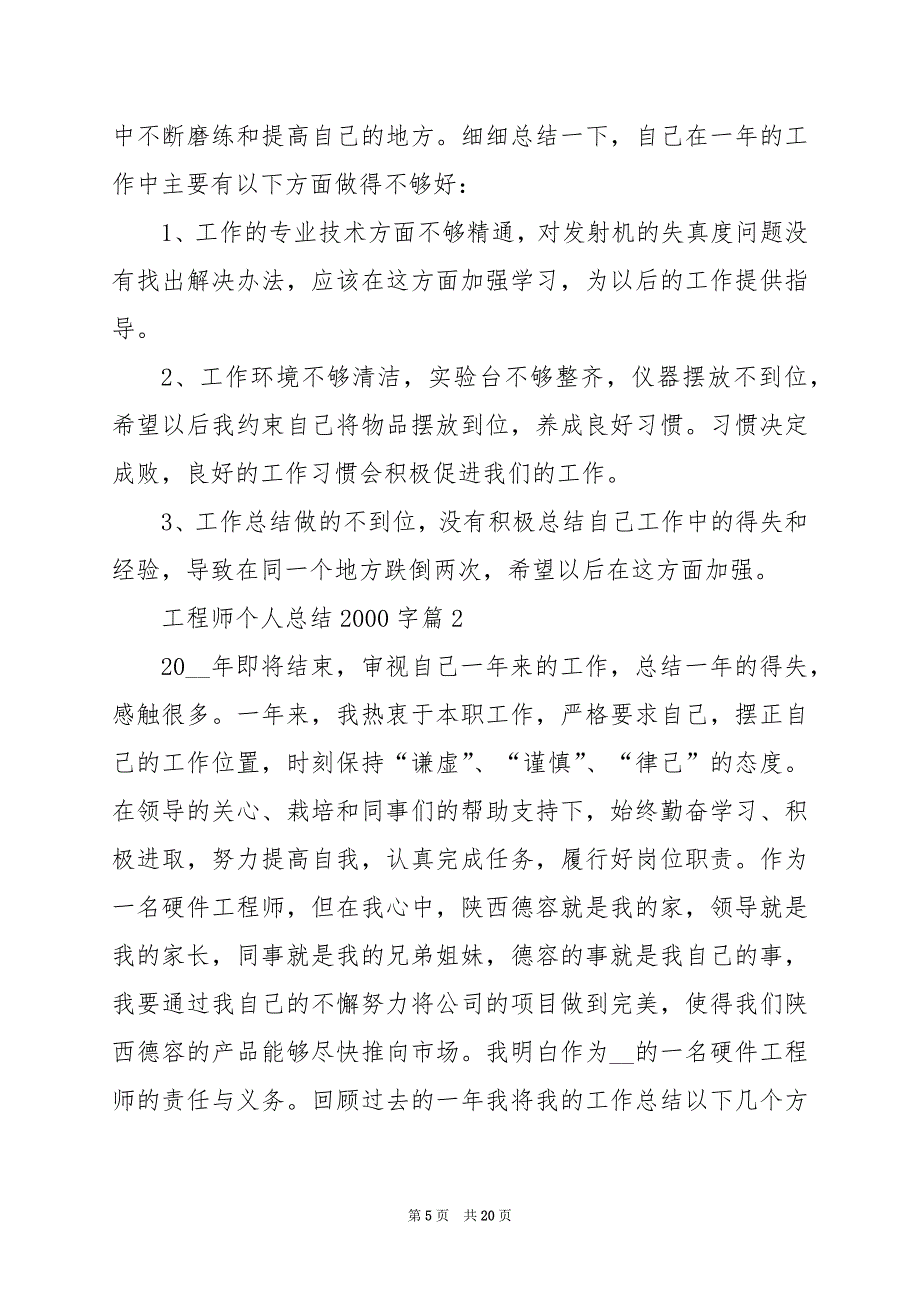 中不断磨练和提高自己的地方。细细总结一下，自己在一年的工
作中主要有以下方面做得不够好：
1、工作的专业技术方面不够精通，对发射机的失真度问题没
有找出解决办法，应该在这方面加强学习，为以后的工作提供指
导。
2、工作环境不够清洁，实验台不够整齐，仪器摆放不到位，
希望以后我约束自己将物品摆放到位，养成良好习惯。习惯决定
成败，良好的工作习惯会积极促进我们的工作。
3、工作总结做的不到位，没有积极总结自己工作中的得失和
经验，导致在同一个地方跌倒两次，希望以后在这方面加强。
工程师个人总结 2000 字篇 2
20__年即将结束，审视自己一年来的工作，总结一年的得失，
感触很多。一年来，我热衷于本职工作，严格要求自己，摆正自
己的工作位置，时刻保持“谦虚”、“谨慎”、“律己”的态度。
在领导的关心、栽培和同事们的帮助支持下，始终勤奋学习、积
极进取，努力提高自我，认真完成任务，履行好岗位职责。作为
一名硬件工程师，但在我心中，陕西德容就是我的家，领导就是
我的家长，同事就是我的兄弟姐妹，德容的事就是我自己的事，
我要通过我自己的不懈努力将公司的项目做到完美，使得我们陕
西德容的产品能够尽快推向市场。我明白作为__的一名硬件工程
师的责任与义务。回顾过去的一年我将我的工作总结以下几个方
第 5 页 共 20 页